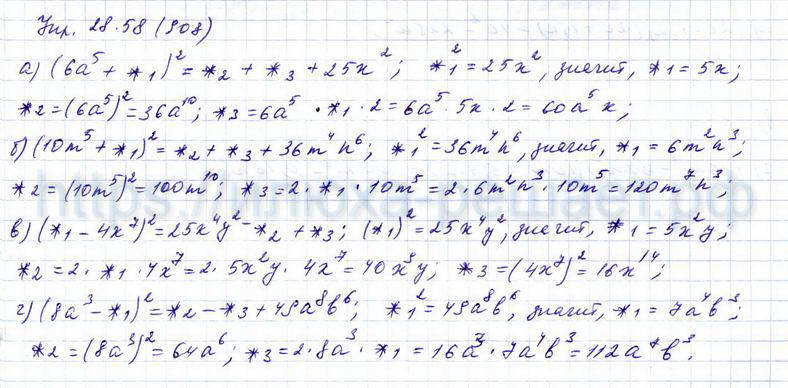 Упр. 28.58 (908)
а) (6a⁵ + *₁)² = *₂ + *₃ + 25x²; *₁² = 25x², значит, *₁ = 5x;
*₂ = (6a⁵)² = 36a¹⁰; *₃ = 6a⁵ · *₁ · 2 = 6a⁵ · 5x · 2 = 60a⁵x;
б) (10m⁵ + *₁)² = *₂ + *₃ + 36m⁴n⁶; *₁² = 36m⁴n⁶, значит, *₁ = 6m²n³;
*₂ = (10m⁵)² = 100m¹⁰; *₃ = 2 · *₁ · 10m⁵ = 2 · 6m²n³ · 10m⁵ = 120m⁷n³;
в) (*₁ - 4x⁷)² = 25x⁴y² - *₂ + *₃; (*₁)² = 25x⁴y², значит, *₁ = 5x²y;
*₂ = 2 · *₁ · 4x⁷ = 2 · 5x²y · 4x⁷ = 40x⁹y; *₃ = (4x⁷)² = 16x¹⁴;
г) (8a³ - *₁)² = *₂ - *₃ + 49a⁸b⁶; *₁² = 49a⁸b⁶, значит, *₁ = 7a⁴b³;
*₂ = (8a³)² = 64a⁶; *₃ = 2 · 8a³ · *₁ = 16a³ · 7a⁴b³ = 112a⁷b³.